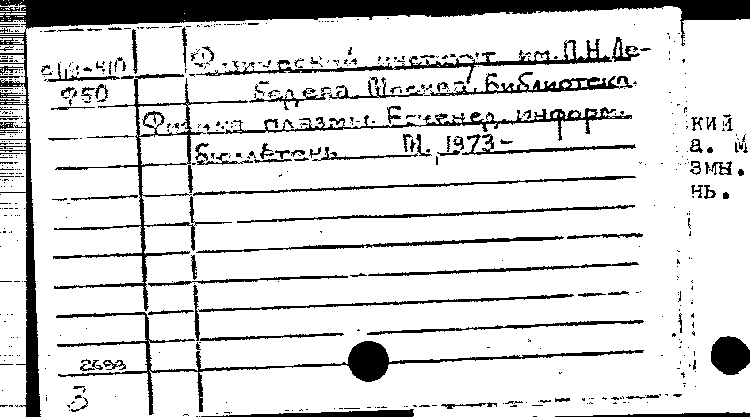 Физический институт им. П.Н. Ле-
Ф50 бедева. Москва. Библиотека.
Физика плазмы. Еженед. информ.
бюллетень. М., 1973-
3
кий
а. М
змы.
нь.